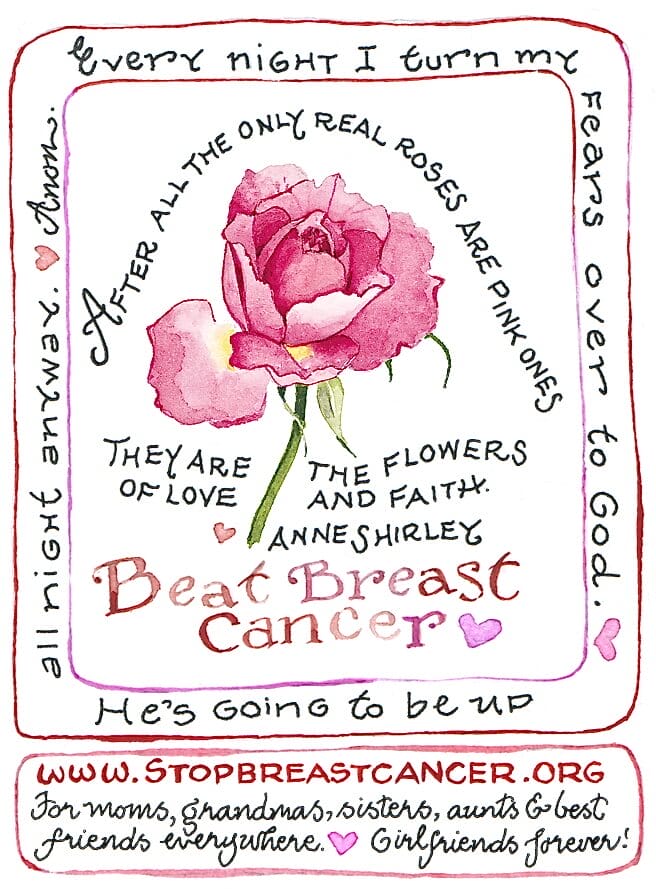 Every night I turn my
fears over to God.
He's going to be up
all night anyway. Anon.
After all the only real roses are pink ones
They are the flowers
of love and faith.
Anne Shirley
Beat Breast
Cancer
www.stopbreastcancer.org
For moms, grandmas, sisters, aunts & best
friends everywhere. Girlfriends forever!